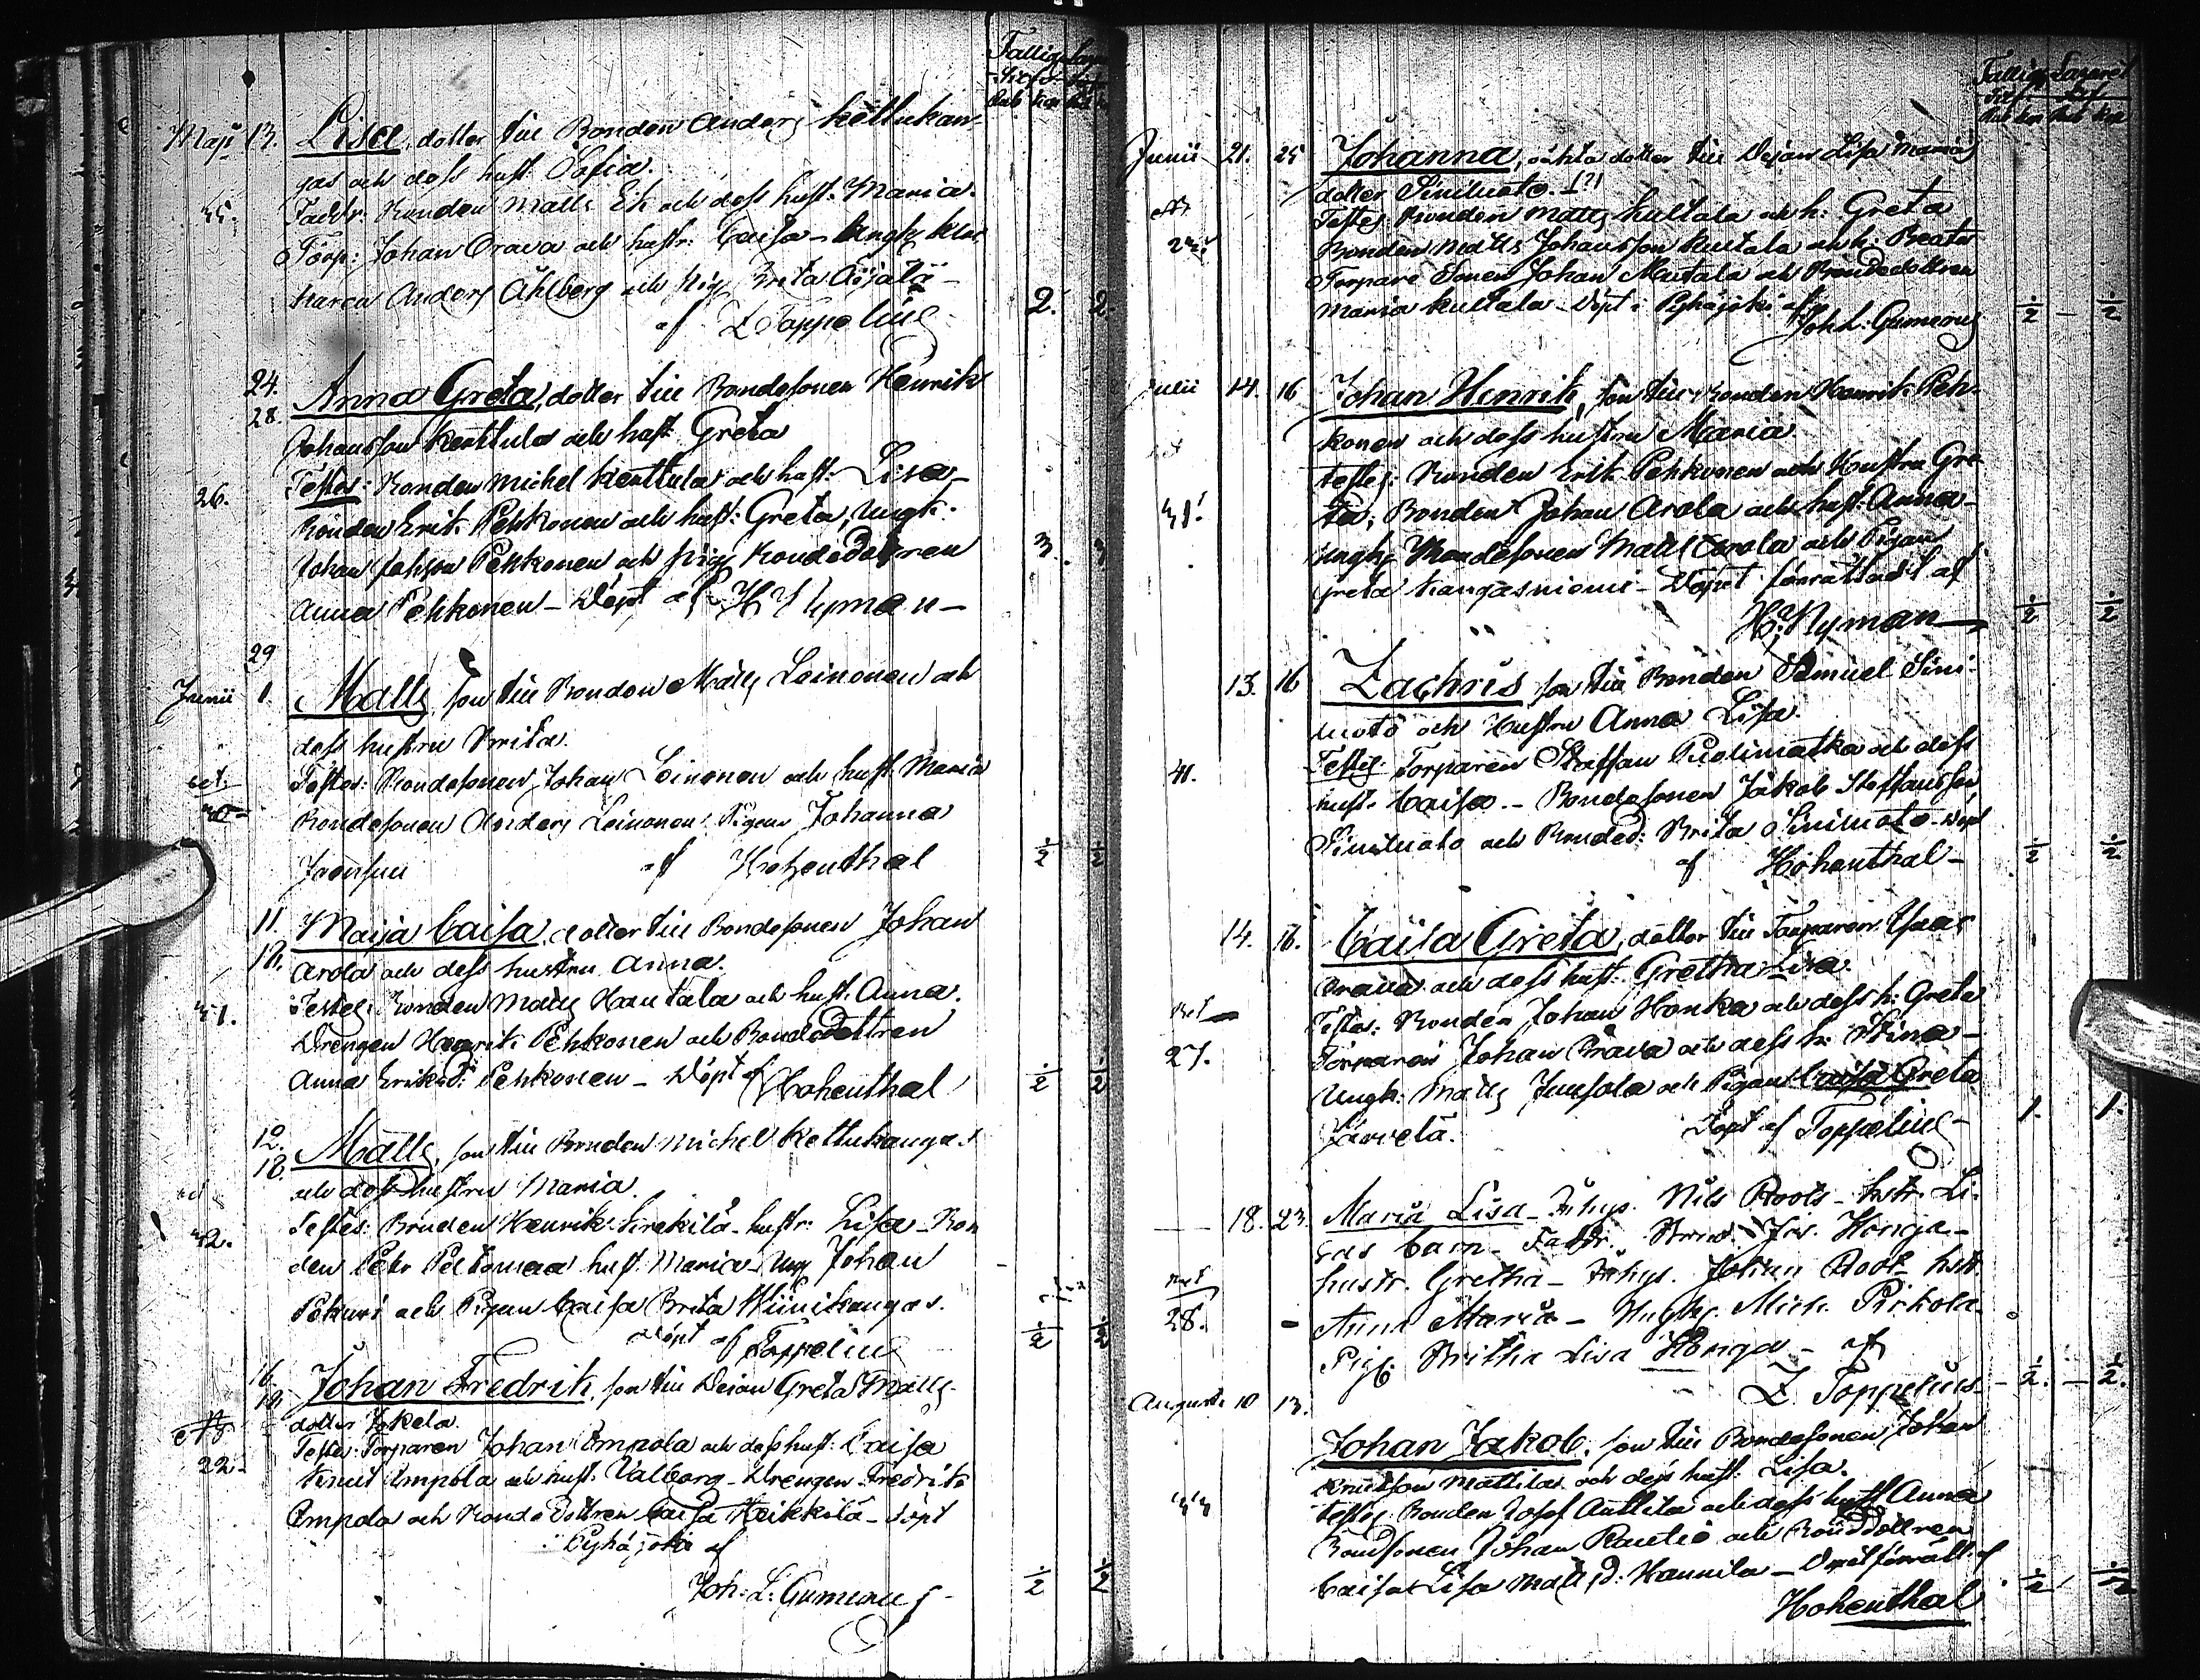 Fattig
Maji 13. Lisa, dotter till Bonden Anders Kettukan-
gas och dess hust. Sofia.
Faddr: Bonden Matts Ek och dess hust: Maria.
45. Torp: Johan Orava och hustr: Caisa - Ungk. Kloc
karen Anders Åhlberg och Pig. Brita
af Z Toppelius 2. 2.
24.
28. Anna Greta, dotter till Bondesonen Henrik
Johansson Kenttula och hust Greta
26. Testes: Bonden Michel Kenttula och hust: Lisa-
Bonden Erik Pehkonen och hust: Greta, Ungk:
Johan Johsson Pehkonen och pig. Bondedottren 3. 3
Anna Pehkonen - Döpt af H Nyman -
29
Junii 1. Matts, son till Bonden Matts Leinonen och
dess hustru Brita.
Testes: Bondesonen Johan Leinonen och hust. Maria
40 Bondesonen Anders Leinonen. Pigan Johanna
af Hohenthal ½ ½
11. Maija Caisa, dotter till Bondesonen Johan
12. Arola och dess hustru Anna.
Testes: Bonden Matts Hautala och hust. Anna.
41. Drengen Henrik Pehkonen och Bondedottren
Anna Eriksd: Pehkonen - Döpt af Hohenthal ½ ½
12.
18. Matts, son till Bonden Michel Kettukangas
och dess hustru Maria.
42. Testes: Bonden Henrik hustr: Lisa - Bon
den Petr Peltomaa hust. Maria - Ung Johan
Pokuri och Pigan Caisa Brita Wiinikangas.
Döpt af Toppelius ½ ½
16.
19. Johan Fredrik, son till Dejan Greta Matts-
dotter Jokela.
Testes: Torparen Johan Ampola och dess hust: Caisa
22- Knut Ampola och hust. Valborg - Drengen Fredrik
Ampola och Bondedottren Caisa Heikkilä - döpt
i Pyhäjoki af
Joh: L: Gumerus ½ ½
Fattig Lazaret
Junii 21. 25 Johanna, oäkta dotter till Dejan Lisa Mariæ
dotter Siniluoto.
Testes: Bonden Matts Kultala och h: Greta
Bonden Matts Johansson Kultala och h: Beata
Torpare Sonen Johan och Bondedottren
Maria Kultala - Döpt i Pyhäjoki af
Joh L: Gumerus ½ - ½
Julii 14. 16 Johan Henrik, son till Bonden Henrik Peh-
konen och dess hustru Maria.
Testes: Bonden Erik Pehkonen och Hustru Gre-
ta, Bonden Johan Arola och hust: Anna-
ungk. Bondesonen Matts Arola och Pigan
Greta Kangasniemi - Döpt förrättadt af
H: Nyman ½ ½
13. 16 Zachris, son till Bonden Samuel Sini-
luoto och Hustru Anna Lisa.
41. Testes: Torparen Staffan Puolimatka och dess
hust. Caisa - Bondesonen Jakob Staffansson
Siniluoto och Bonded: Brita Siniluoto - döpt
af Hohenthal - ½ ½
14. 16. Caisa Greta, dotter till Torparen Isaac
Orava och dess hust. Gretha Lisa.
Testes: Bonden Johan Honka och dess h: Greta
27. Torparen Johan Orava och dess h: Stina -
Ungk: Matts Junsola och Pigan Caisa Greta
Järvelä. Döpt af Toppelius - 1. 1.
18. 23. Maria Lisa - Inhys. Nils Roots - hstr. Li-
sas barn - Faddr. Jos. Honga -
hustr. Gretha - Inhys. Johan Root hstr.
28. Anna Maria - Ungk. Mich. Pirkola
Pig. Britha Lisa Honga - af
Z. Toppelius - ½ - ½
Augusti 10 13.
Johan Jakob, son till Bondesonen Johan
Mattila och dess hust: Lisa.
44 Testes: Bonden Josef Anttila och dess hust Anna
Bondsonen Johan Rautio och Bonddottren
Caisa Lisa Matts d: Hannila - Döpt förrätt. af
Hohenthal ½ ½